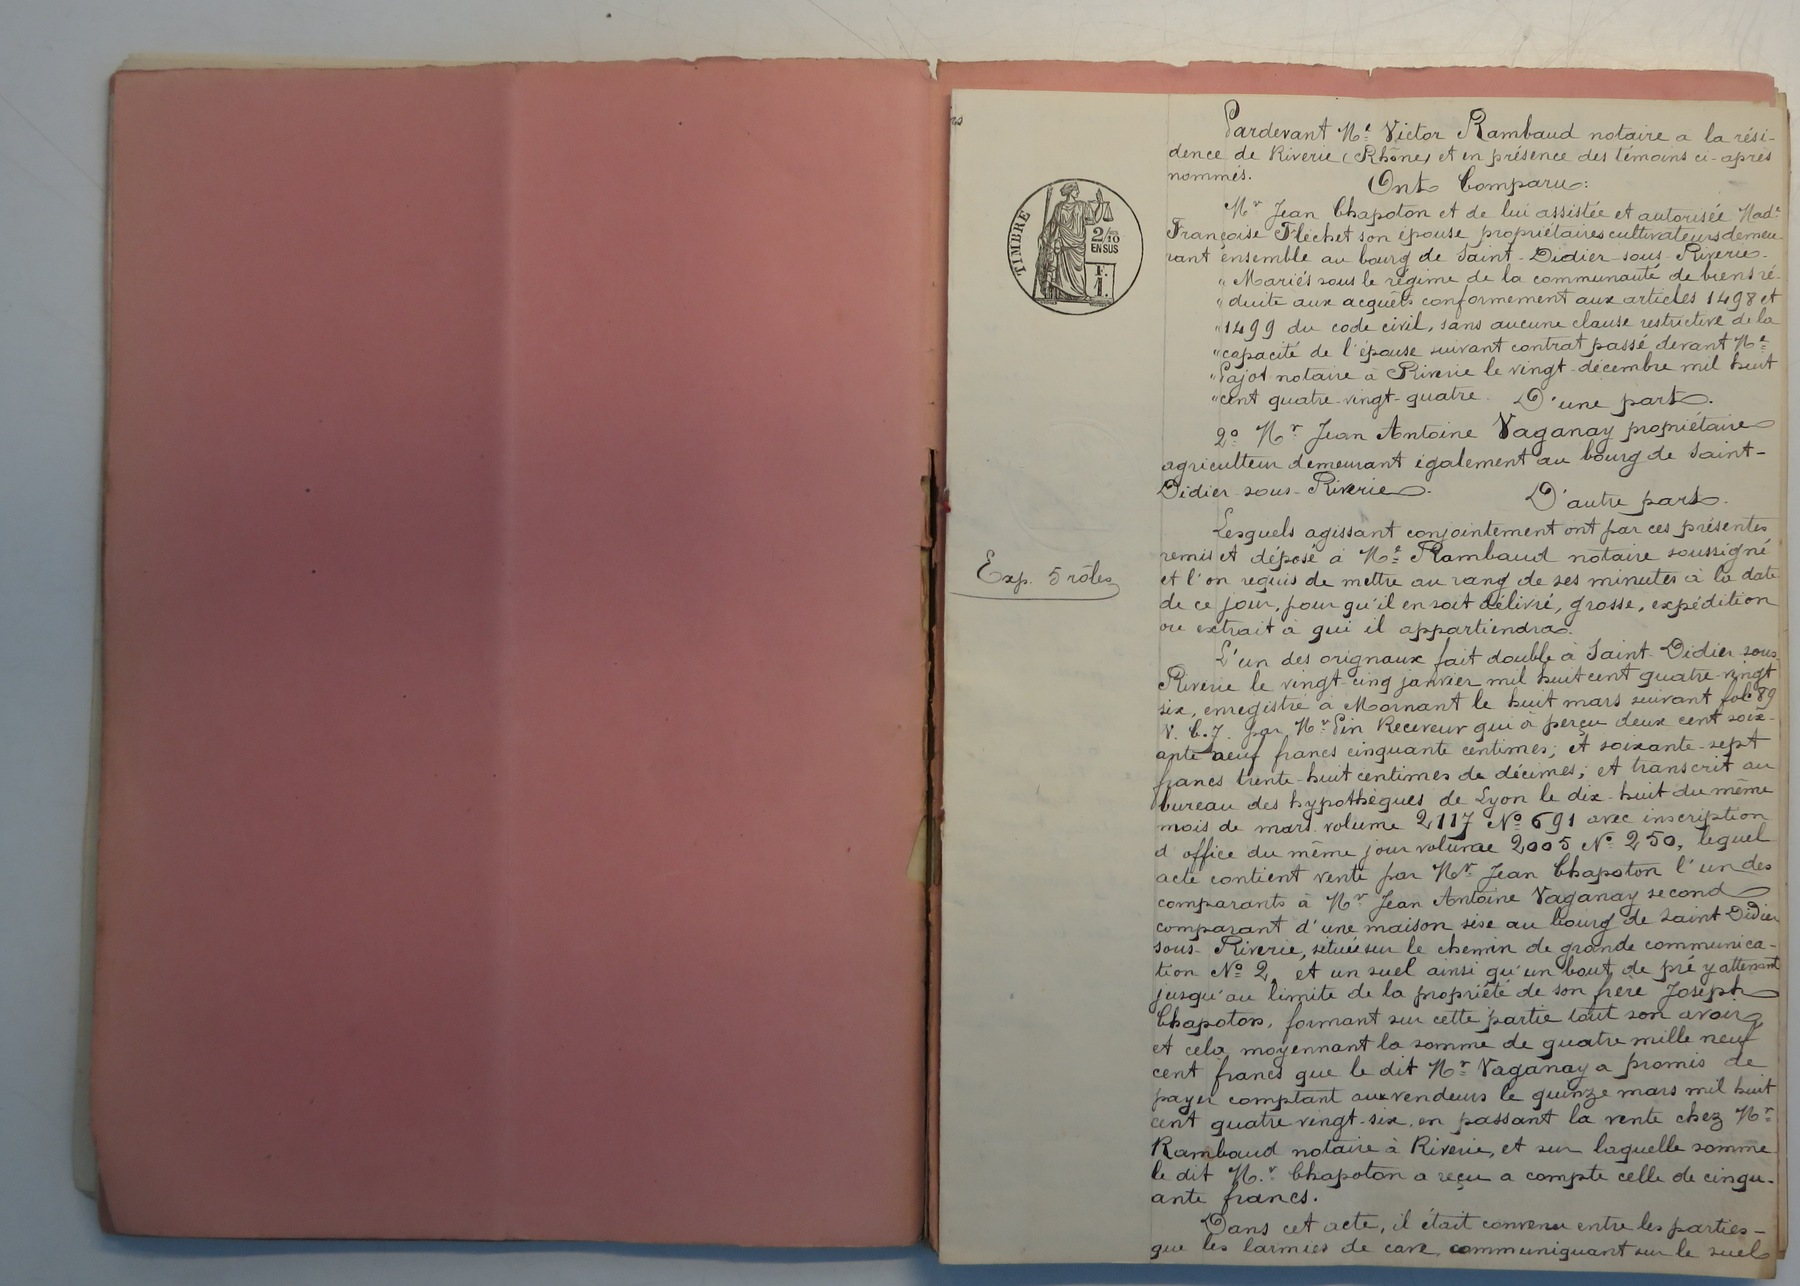 Pardevant Me Victor Rambaud notaire a la rési-
dence de Riverie (Rhône) et en présence des témoins ci-après
nommés.
Ont Comparu:
Mr Jean Chapoton et de lui assistée et autorisée Made
Françoise Fléchet son épouse propriétaires cultivateurs demeu-
rant ensemble au bourg de Saint-Didier-sous-Riverie.
" Mariés sous le régime de la communauté de biens ré-
" duite aux acquêts conformement aux articles 1498 et
" 1499 du code civil, sans aucune clause restrictive de la
" capacité de l'épouse suivant contrat passé devant Me
" Pajot notaire à Riverie le vingt-décembre mil huit
" cent quatre-vingt-quatre. D'une part.
2o Mr Jean Antoine Vaganay propriétaire
agriculteur demeurant également au bourg de Saint-
Didier-sous-Riverie. D'autre part.
Lesquels agissant conjointement ont par ces présentes
remis et déposé à Me Rambaud notaire soussigné
et l'on requis de mettre au rang de ses minutes à la date
de ce jour, pour qu'il en soit délivré, grosse, expédition
ou extrait à qui il appartiendra.
L'un des orignaux fait double à Saint-Didier-sous
Riverie le vingt-cinq janvier mil huit cent quatre-vingt
six, enregistré à Mornant le huit mars suivant folo 89
V. C. 7. par Mr Pin Receveur qui à perçu deux cent soix-
ante neuf francs cinquante centimes; et soixante-sept
francs trente-huit centimes de décimes; et transcrit au
bureau des hypothèques de Lyon le dix-huit du même
mois de mars volume 2117 No 691 avec inscription
d'office du même jour volume 2005 No 250, lequel
acte contient vente par Mr Jean Chapoton l'un des
comparants à Mr Jean Antoine Vaganay second
comparant d'une maison sise au bourg de Saint Didier
sous-Riverie, située sur le chemin de grande communica-
tion No 2, et un suel ainsi qu'un bout de pré y attenant
jusqu'au limite de la propriété de son frère Joseph
Chapoton, formant sur cette partie tout son avoir,
et cela moyennant la somme de quatre mille neuf
cent francs que le dit Mr Vaganay a promis de
payer comptant aux vendeurs le quinze mars mil huit
cent quatre-vingt-six, en passant la vente chez Mr
Rambaud notaire à Riverie, et sur laquelle somme
le dit Mr Chapoton a reçu a compte celle de cinqu-
ante francs.
Dans cet acte, il était convenu entre les parties-
que les larmiers de cave communiquant sur le suel
TIMBRE
2/10
EN SUS
F.
1.
Exp. 5 rôles